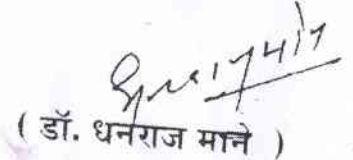 ( डॉ. धनराज माने )